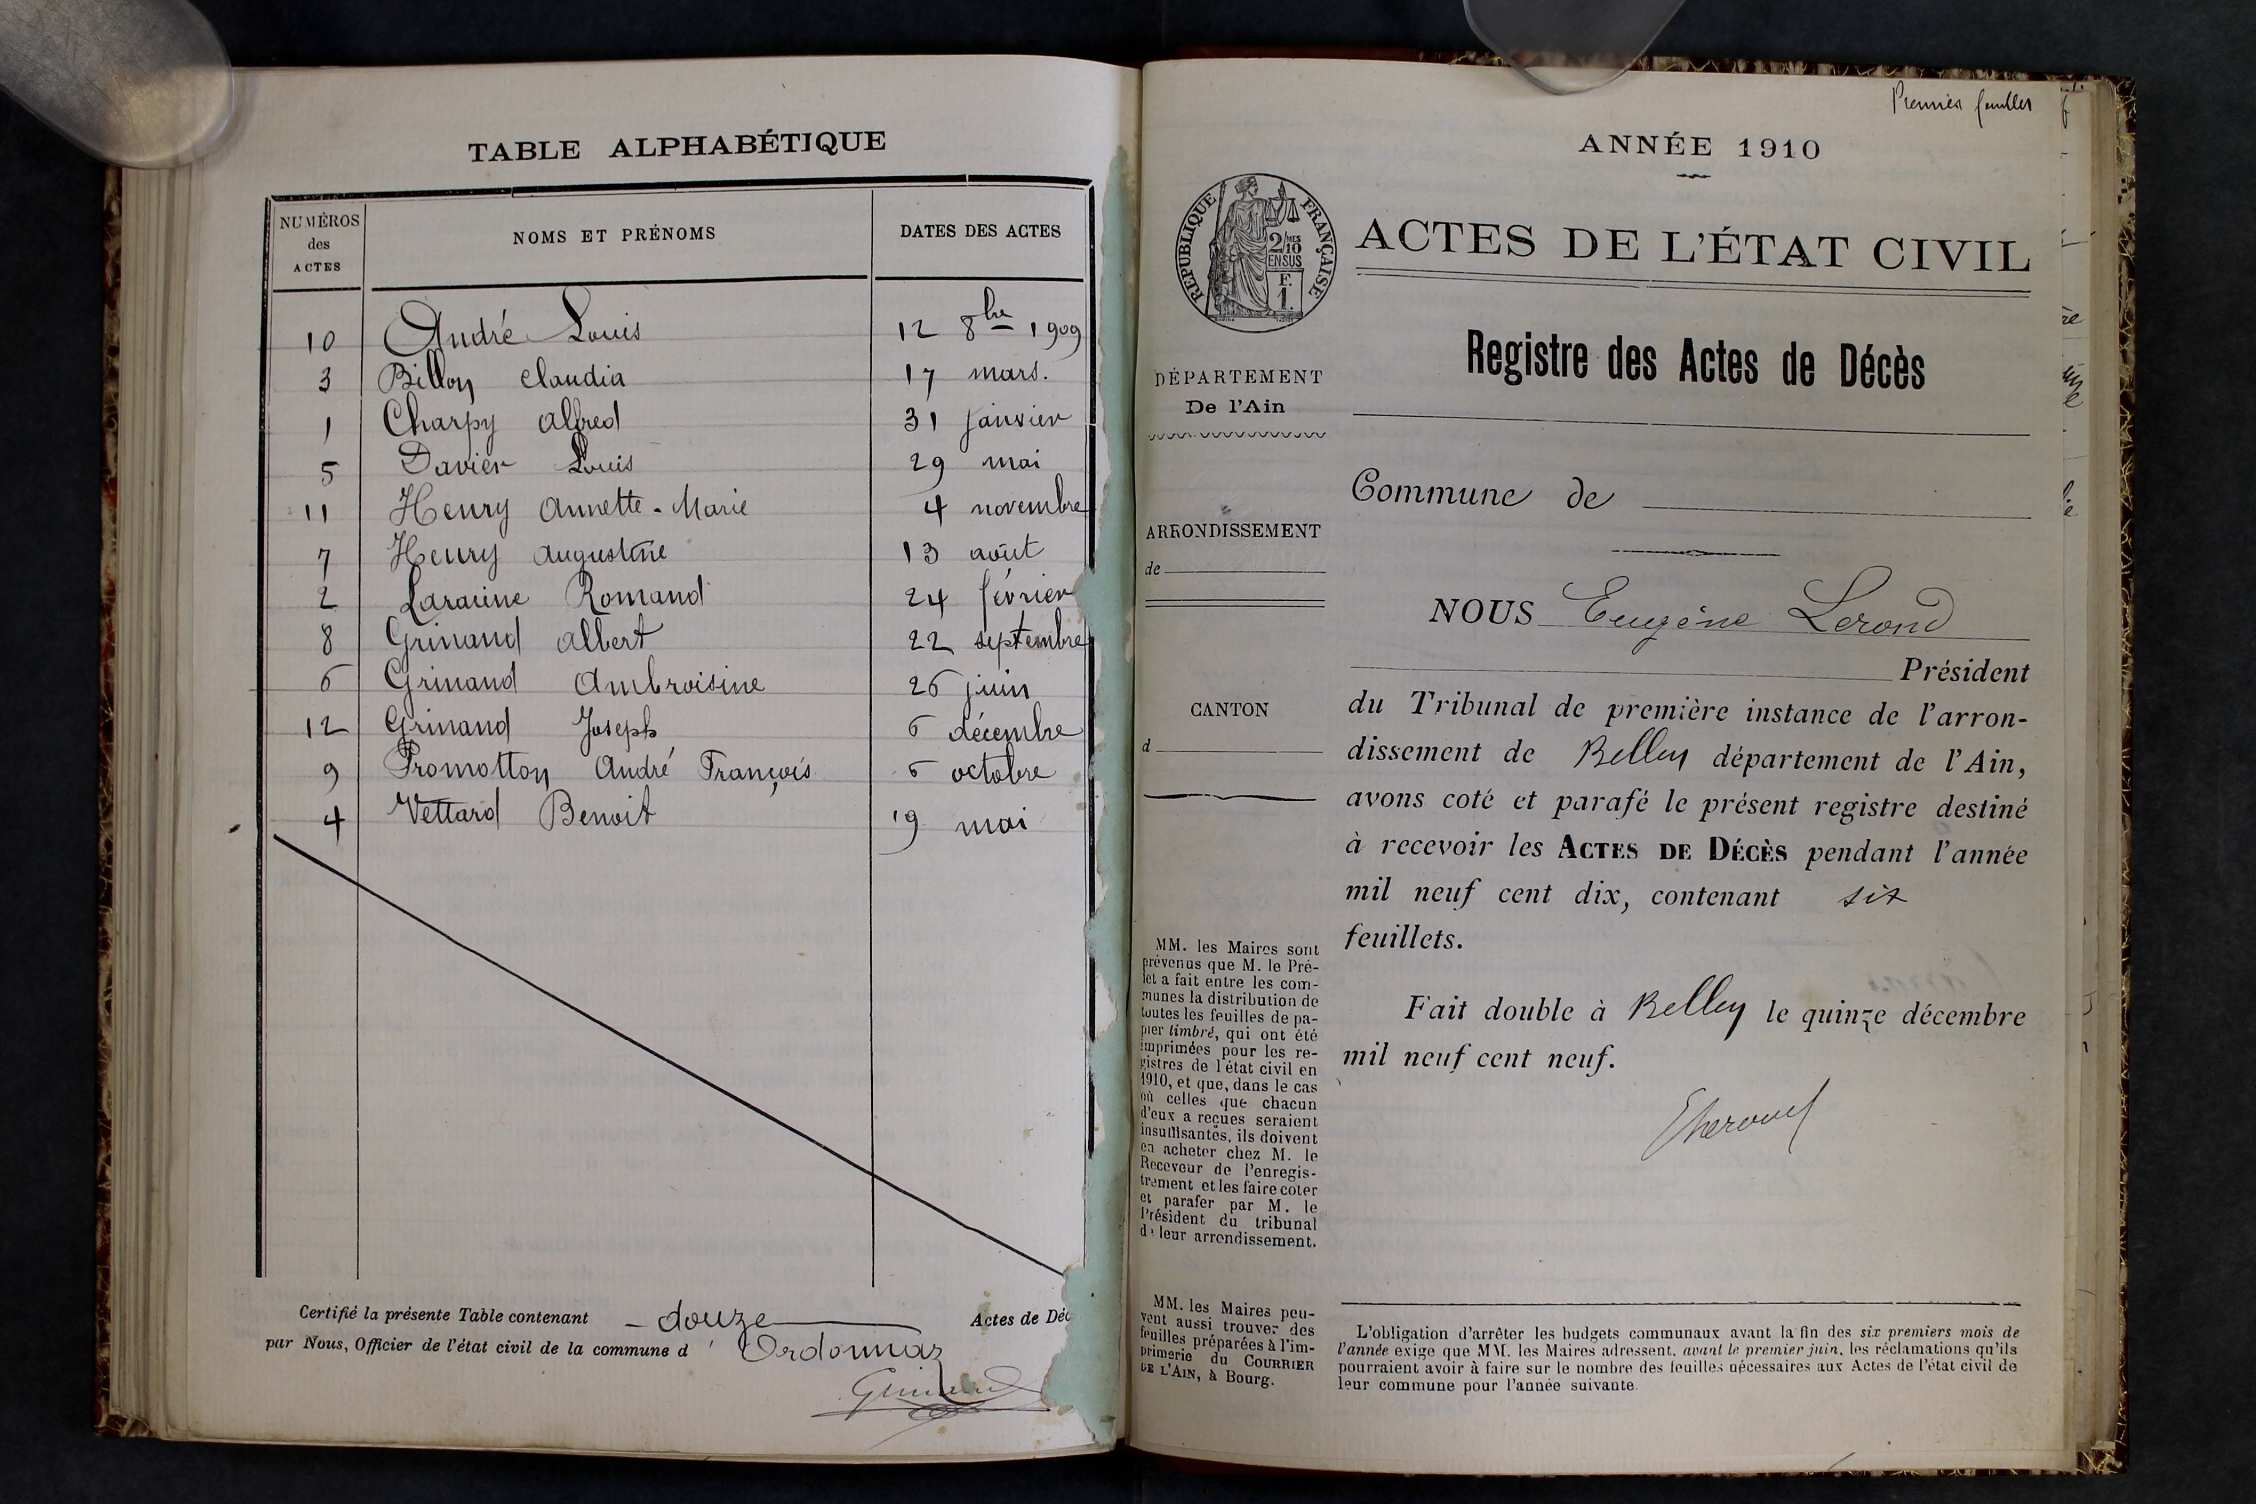 TABLE ALPHABÉTIQUE
NUMÉROS des ACTES NOMS ET PRÉNOMS DATES DES ACTES
10 André Louis 12 8bre 1909
3 Billon Claudia 17 mars.
1 Charpy Alfred 31 janvier
5 Davier Louis 29 mai
11 Henry Annette-Marie 4 novembre
7 Henry Augustine 13 août
2 Laracine Romand 24 février
8 Grinand Albert 22 septembre
6 Grinand Ambroisine 26 juin
12 Grinand Joseph 6 décembre
9 Promotton André François 6 octobre
4 Vettard Benoit 19 mai
Certifié la présente Table contenant douze Actes de Déc
par Nous, Officier de l'état civil de la commune d' Ordonnaz
Premier feuillet
ANNÉE 1910
RÉPUBLIQUE FRANÇAISE
2/10
EN SUS
F.
1.
ACTES DE L'ÉTAT CIVIL
Registre des Actes de Décès
DÉPARTEMENT
De l'Ain
ARRONDISSEMENT
de
CANTON
d
MM. les Maires sont
prévenus que M. le Pré-
fet a fait entre les com-
munes la distribution de
toutes les feuilles de pa-
pier timbré, qui ont été
imprimées pour les re-
gistres de l'état civil en
1910, et que, dans le cas
où celles que chacun
d'eux a reçues seraient
insuffisantes, ils doivent
en acheter chez M. le
Receveur de l'enregis-
trement et les faire coter
et parafer par M. le
Président du tribunal
de leur arrondissement.
MM. les Maires peu-
vent aussi trouver des
feuilles préparées à l'im-
primerie du COURRIER
DE L'AIN, à Bourg.
Commune de
NOUS Eugène Lerond
Président
du Tribunal de première instance de l'arron-
dissement de Belley département de l'Ain,
avons coté et parafé le présent registre destiné
à recevoir les ACTES DE DÉCÈS pendant l'année
mil neuf cent dix, contenant six
feuillets.
Fait double à Belley le quinze décembre
mil neuf cent neuf.
L'obligation d'arrêter les budgets communaux avant la fin des six premiers mois de
l'année exige que MM. les Maires adressent, avant le premier juin, les réclamations qu'ils
pourraient avoir à faire sur le nombre des feuilles nécessaires aux Actes de l'état civil de
leur commune pour l'année suivante.